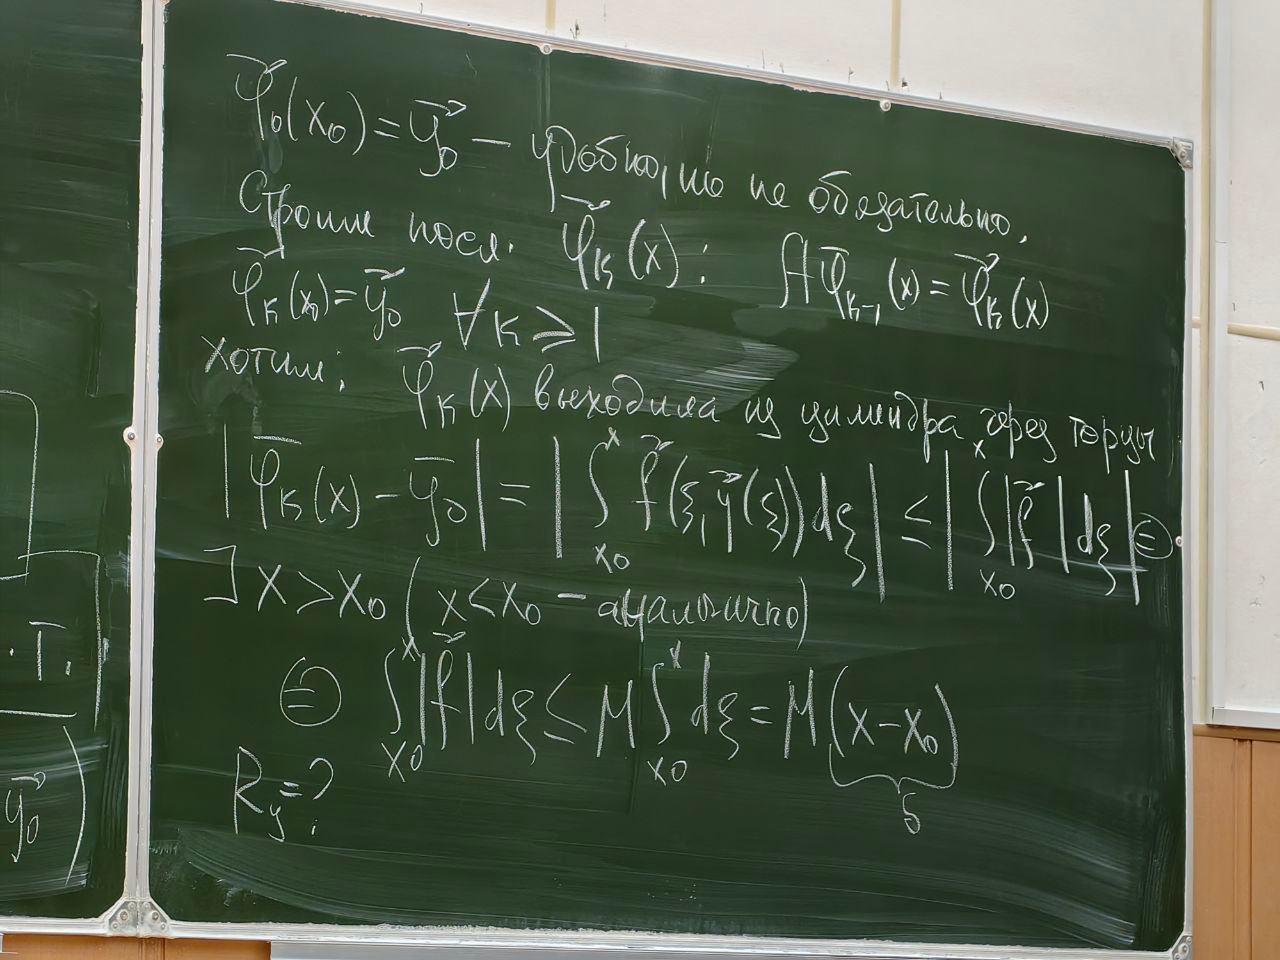 φ⃗₀(x₀) = y⃗₀ — удобно, но не обязательно.
Строим посл. φ⃗ₖ(x): Aφ⃗ₖ₋₁(x) = φ⃗ₖ(x)
φ⃗ₖ(x₀) = y⃗₀ ∀k ⩾ 1
хотим: φ⃗ₖ(x) выходила из цилиндра через торцы
|φ⃗ₖ(x) − y⃗₀| = |∫ₓ₀ˣ f⃗(ξ, y⃗(ξ))dξ| ≤ |∫ₓ₀ˣ |f⃗| dξ| ⊜
∃ x > x₀ (x < x₀ − аналогично)
⊜ ∫ₓ₀ˣ |f⃗| dξ ≤ M ∫ₓ₀ˣ dξ = M(x − x₀)
δ
R_y = ?
.т.
y⃗₀)